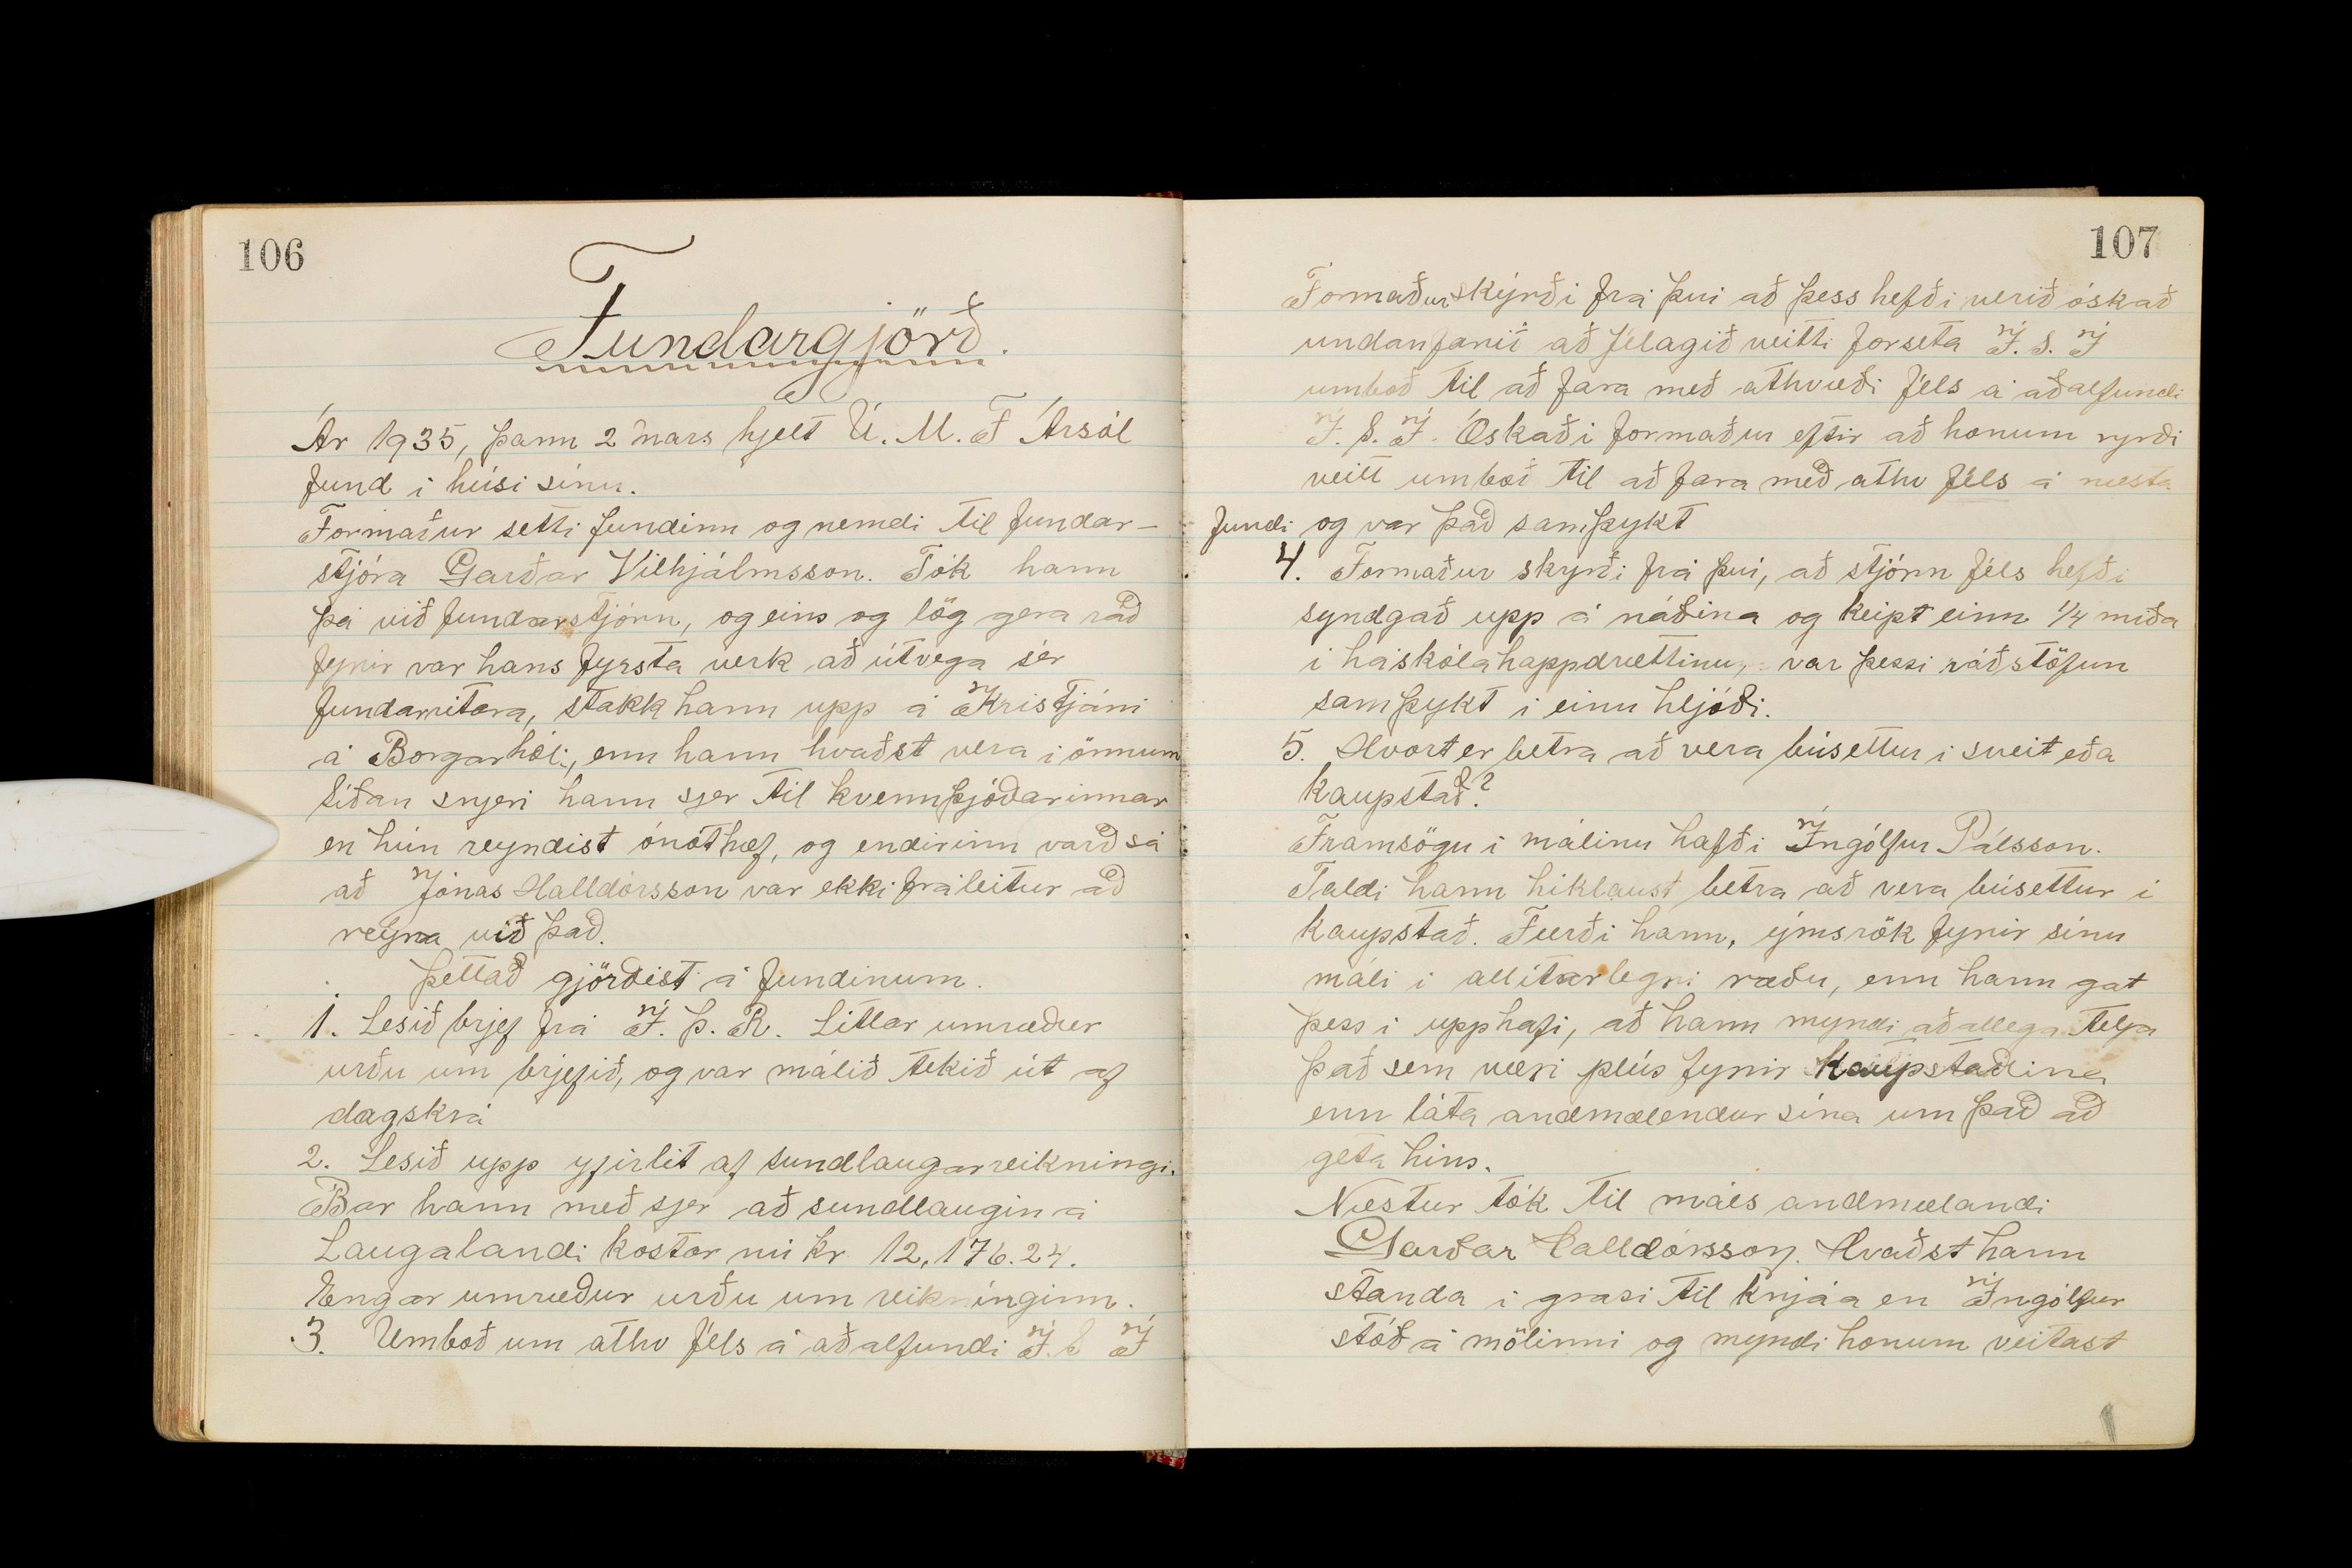 106
Fundargjörð.
Ár 1935, þann 2 mars hjelt U. M. F Ársól
fund i húsi sínu.
Formaður setti fundinn og nemdi til fundar-
stjóra Garðar Vilhjálmsson. Tók hann
þá við fundarstjórn, og eins og lög gera ráð
fyrir var hans fyrsta verk að útvega sér
fundarritara, stakk hann upp á Kristjáni
á Borgarhóli, enn hann hvaðst vera i önnum
Siðan snjeri hann sjer til kvennþjóðarinnar
en hún reyndist ónóthæf, og endirinn varð sá
að Jónas Halldórsson var ekki fráleitur að
reyna við það.
Þettað gjörðist á fundinum.
1. Lesið brjef frá I. Þ. R. Litlar umræður
urðu um brjefið, og var málið tekið út af
dagskrá
2. Lesið upp yfirlit af sundlaugarreikningi.
Bar hann með sjer að sundlaugin á
Laugalandi kostar nú kr 12,176.24.
Engar umræður urðu um reikninginn.
3. Umboð um athv féls á aðalfundi I. S I
107
Formaður skýrði frá þvi að þess hefði verið óskað
undanfarið að félagið veitti forseta I. S. I
umboð til að fara með athvæði féls á aðalfundi
I. S. I. Óskaði formaður eftir að honum yrði
veitt umboð til að fara með athv féls á næsta
fundi og var það samþykt
4. Formaður skyrði frá því, að stjórn féls hefði
syndgað upp á náðina og keipt einn 1/4 miða
i háskólahappdrættinu, var þessi ráðstöfun
samþykt i einu hljóði.
5. Hvort er betra að vera búsettur i sveit eða
kaupstað?
Framsögu i málinu hafði Ingólfur Pálsson.
Taldi hann hiklaust betra að vera búsettur i
kaupstað. Færði hann, ýms rök fyrir sínu
máli i allítarlegri ræðu, enn hann gat
þess i upphafi, að hann myndi aðallega telja
það sem væri plús fyrir Kaupstaðina
enn láta andmælendur sína um það að
geta hins.
Næstur tók til máls andmælandi
Garðar Halldórsson. Hvaðst hann
standa i grasi til knjáa en Ingólfur
stóð á mölinni og myndi honum veitast